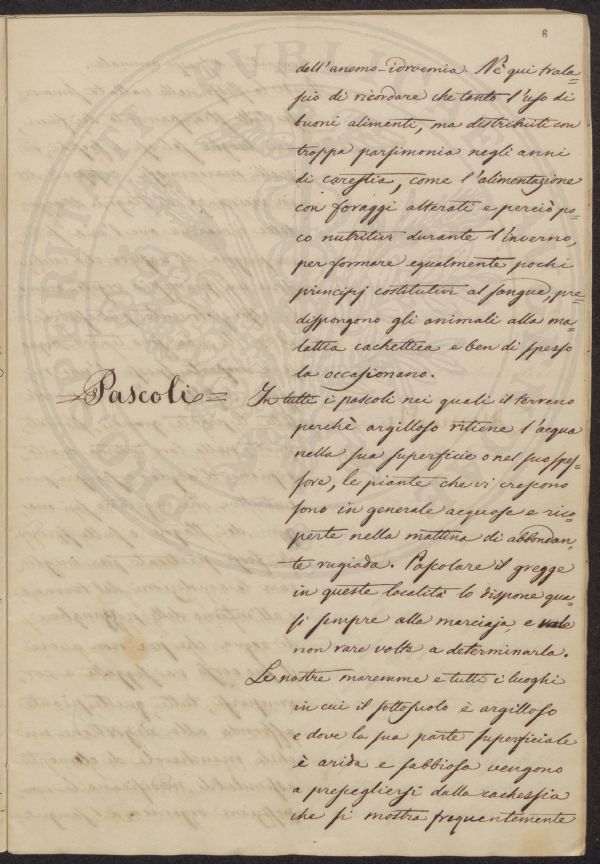 8
dell'anemo-idroemia. Nè qui trala=
scio di ricordare che tanto l'uso di
buoni alimenti, ma distribuiti con
troppa parsimonia negli anni
di carestia, come l'alimentazione
con foraggi alterati e perciò po=
co nutritivi durante l'inverno,
per formare egualmente pochi
principj costitutivi al sangue, pre=
dispongono gli animali alla ma=
lattia cachettica e ben di spesso
la occasionano.
=Pascoli=
In tutti i pascoli nei quali il terreno
perchè argilloso ritiene l'acqua
nella sua superficie o nel suo spes=
sore, le piante che vi crescono
sono in generale acquose e rico=
perte nella mattina di abbondan=
te rugiada. Pascolare il gregge
in queste località lo dispone qua=
si sempre alla marciaja, e
non rare volte a determinarla.
Le nostre maremme e tutti i luoghi
in cui il sottosuolo è argilloso
e dove la sua parte superficiale
è arida e sabbiosa vengono
a prescegliersi dalla cachessia
che si mostra frequentemente